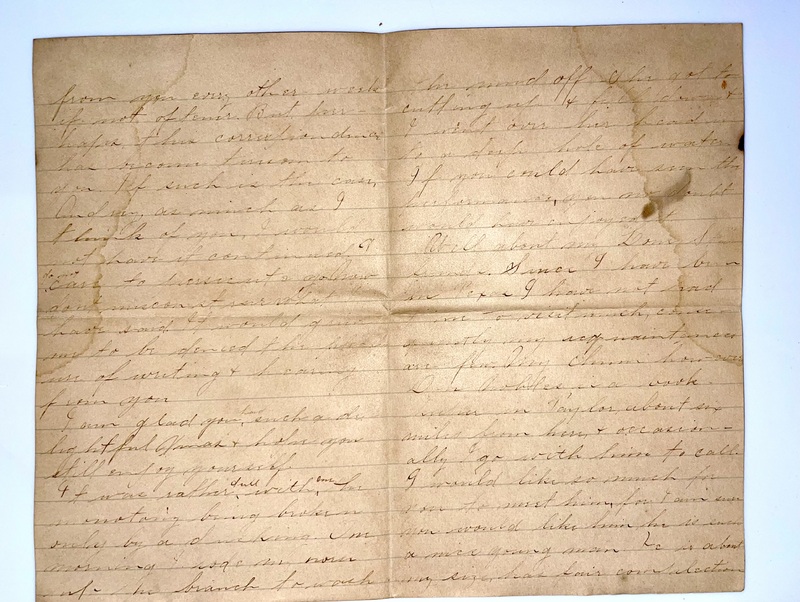 from you every other week
if not oftener. But per-
haps this correspondence
has become tiresome to
you. If such is the case,
as much as I
think of you, I would
not have it continued. I
do not care to persecute
misconstrue what I
have said. It would grieve
me to be denied the
of writing & hearing
from you
I am glad you such a de-
lightful Xmas & hope you
still enjoy yourself.
It was rather dull with me, the
monotony being broken
only by a ducking. One
morning I rode my horse
the branch to wash
the mud off. He got to
cutting up &
I went over his head in
to a deep hole of water.
If you could have seen the
performance, you no doubt
would have enjoyed it
Well about my
Since I have been
here I have not had
time to visit much,
my acquaintances
are few. My chum however
Nobles is a book
in Taylor, about six
miles from here, & occasion-
ally I go with him to call.
I would like so much for
you to meet him, for I am sure
you would like him he is such
a nice young man He is about
my size, has fair complection